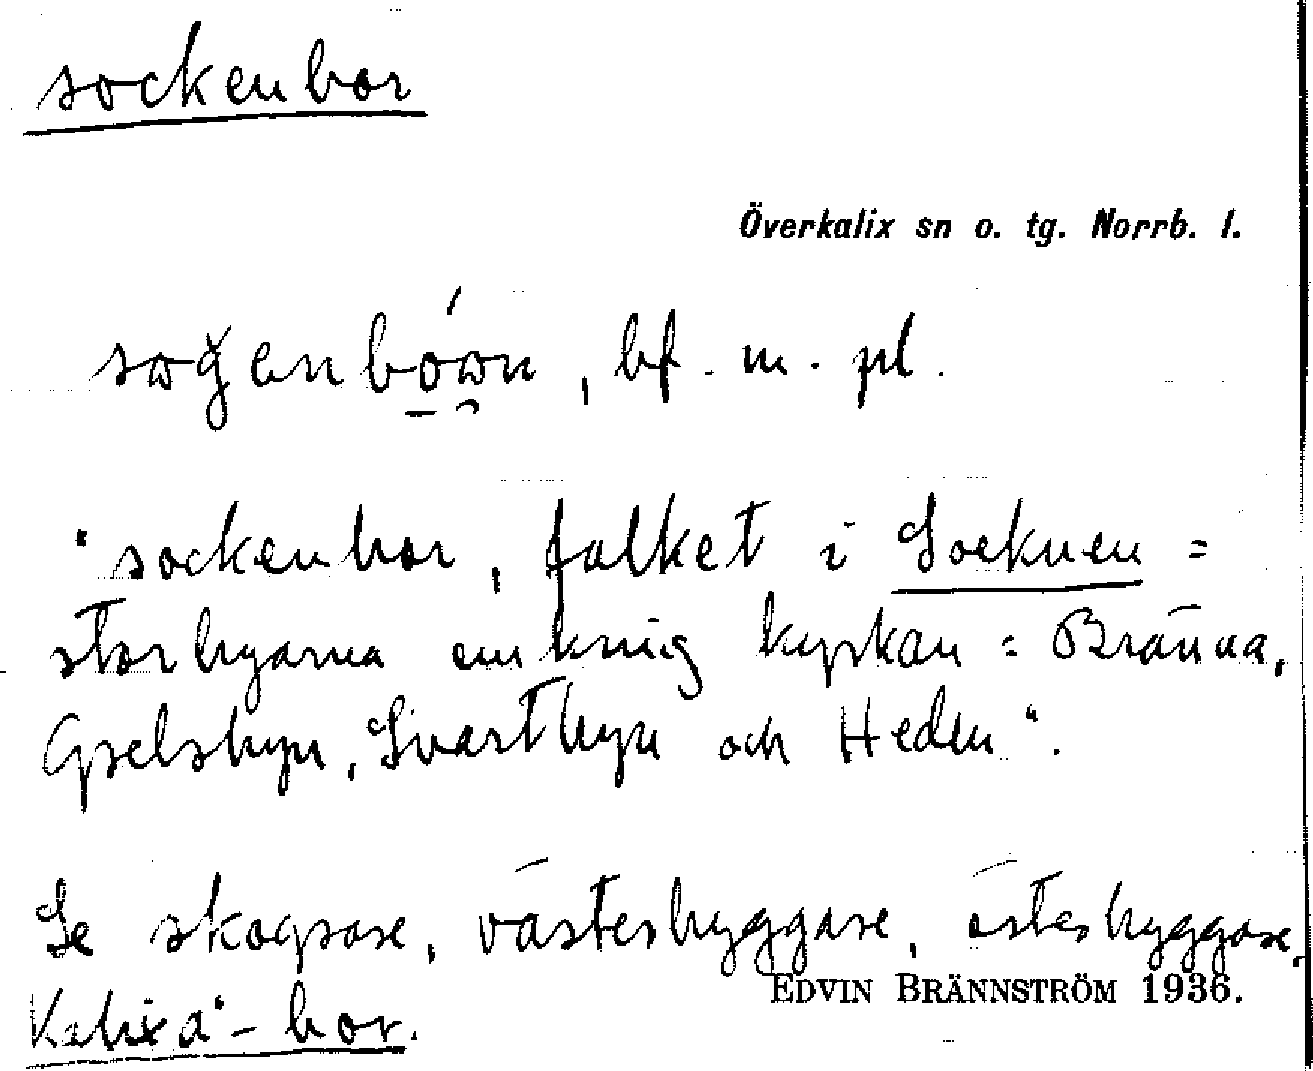 sockenbor
Överkalix sn o. tg. Norrb. l.
bf. m. pl.
"sockenbor, folket i Socknen =
storbyarna omkring kyrkan = Bränna,
Gyelsbyn, Svartbyn och Heden".
Se skogsare, västerbyggare, österbyggare,
Kalixå-bor.
EDVIN BRÄNNSTRÖM 1936.